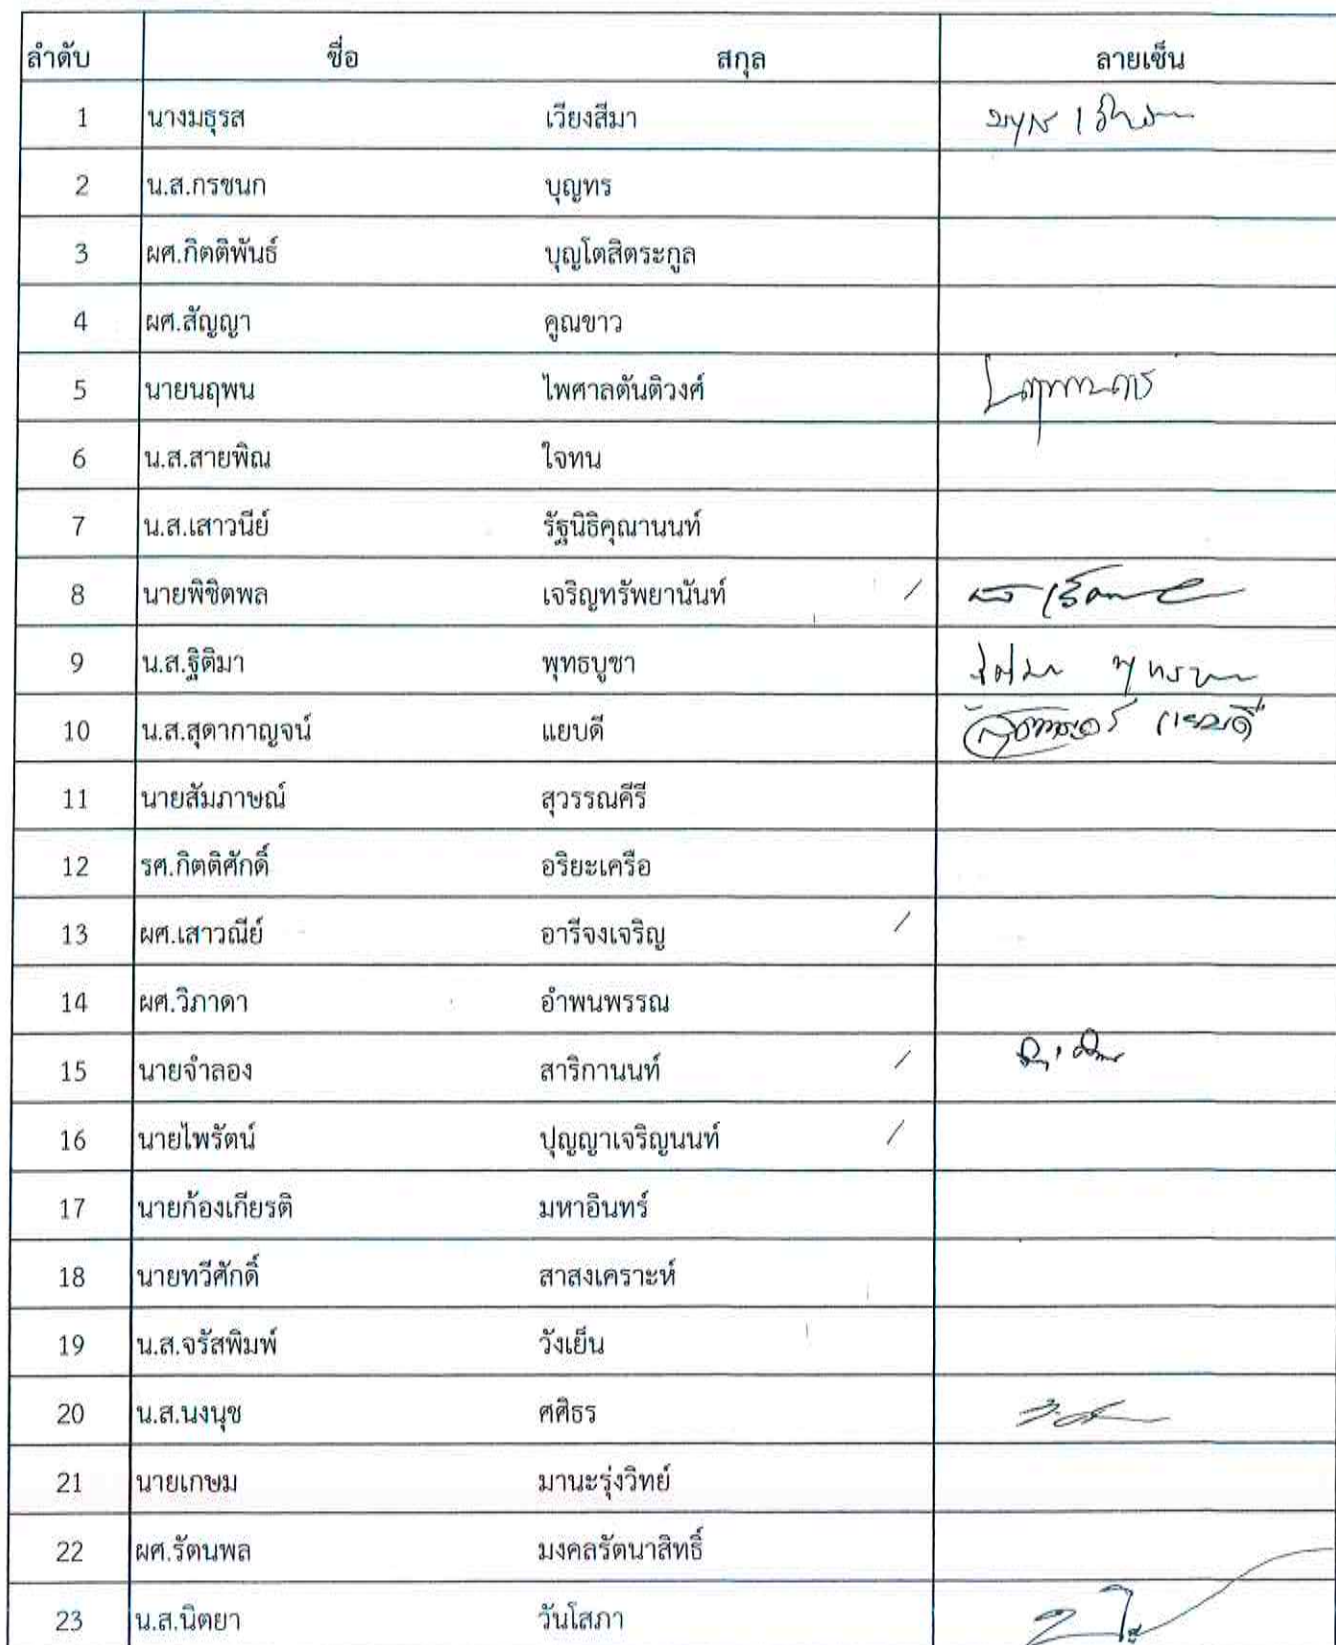 ลำดับ ชื่อ สกุล ลายเซ็น
1 นางมธุรส เวียงสีมา
2 น.ส.กรชนก บุญทร
3 ผศ.กิตติพันธ์ บุญโตสิตระกูล
4 ผศ.สัญญา คูณขาว
5 นายนฤพน ไพศาลตันติวงศ์
6 น.ส.สายพิณ ใจทน
7 น.ส.เสาวนีย์ รัฐนิธิคุณานนท์
8 นายพิชิตพล เจริญทรัพยานันท์ /
9 น.ส.ฐิติมา พุทธบูชา
10 น.ส.สุดากาญจน์ แยบดี แยบดี
11 นายสัมภาษณ์ สุวรรณคีรี
12 รศ.กิตติศักดิ์ อริยะเครือ
13 ผศ.เสาวณีย์ อารีจงเจริญ /
14 ผศ.วิภาดา อำพนพรรณ
15 นายจำลอง สาริกานนท์ /
16 นายไพรัตน์ ปุญญาเจริญนนท์ /
17 นายก้องเกียรติ มหาอินทร์
18 นายทวีศักดิ์ สาสงเคราะห์
19 น.ส.จรัสพิมพ์ วังเย็น
20 น.ส.นงนุช ศศิธร
21 นายเกษม มานะรุ่งวิทย์
22 ผศ.รัตนพล มงคลรัตนาสิทธิ์
23 น.ส.นิตยา วันโสภา